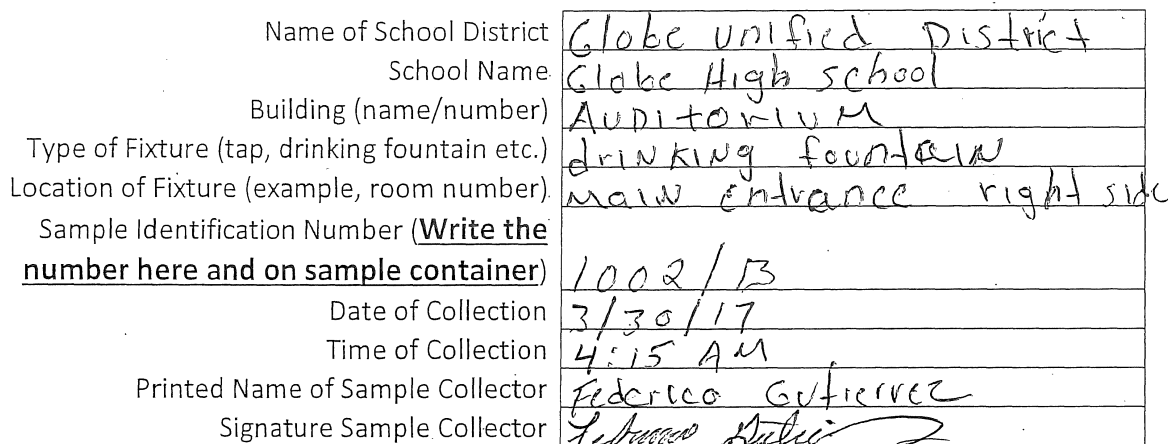 Name of School District Globe unified District
School Name Globe High school
Building (name/number) AUDItorIUM
Type of Fixture (tap, drinking fountain etc.) drinking fountain
Location of Fixture (example, room number) main entrance right side
Sample Identification Number (Write the
number here and on sample container) 1002/B
Date of Collection 3/30/17
Time of Collection 4:15 AM
Printed Name of Sample Collector Federico Gutierrez
Signature Sample Collector